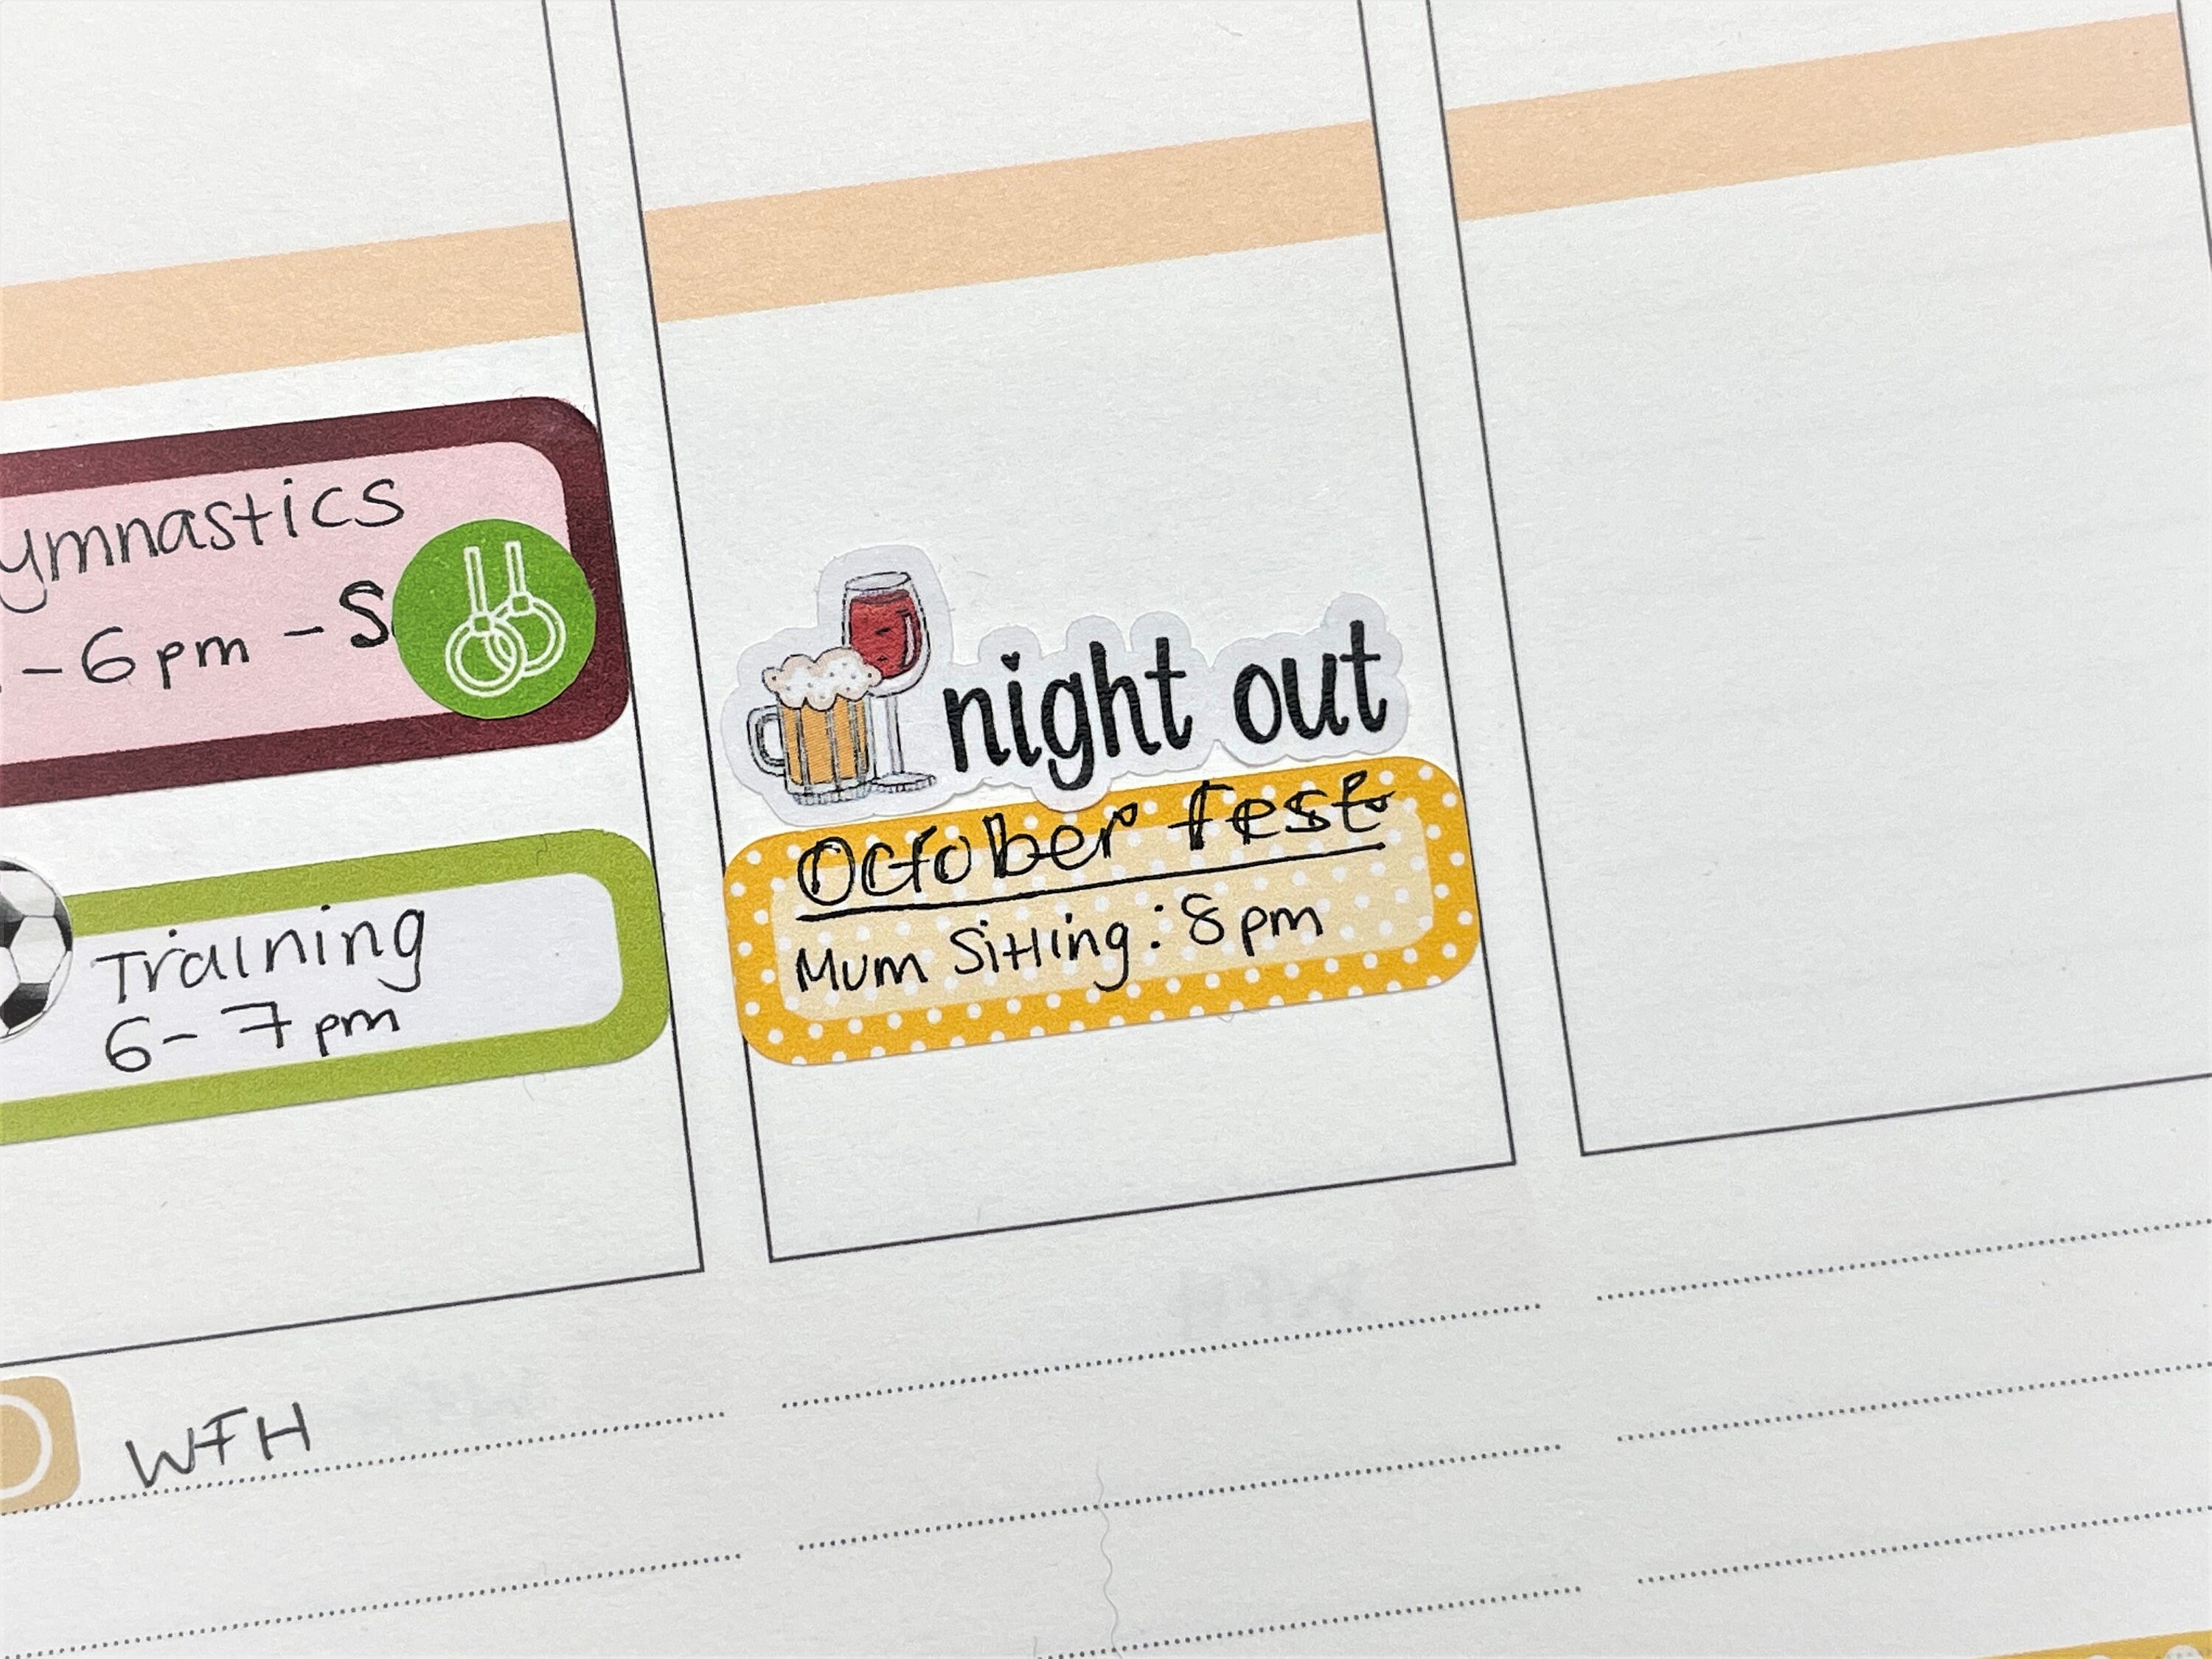 ymnastics
-6pm - S
Training
6-7pm
WFH
night out
October fest
Mum Sitting: 8pm